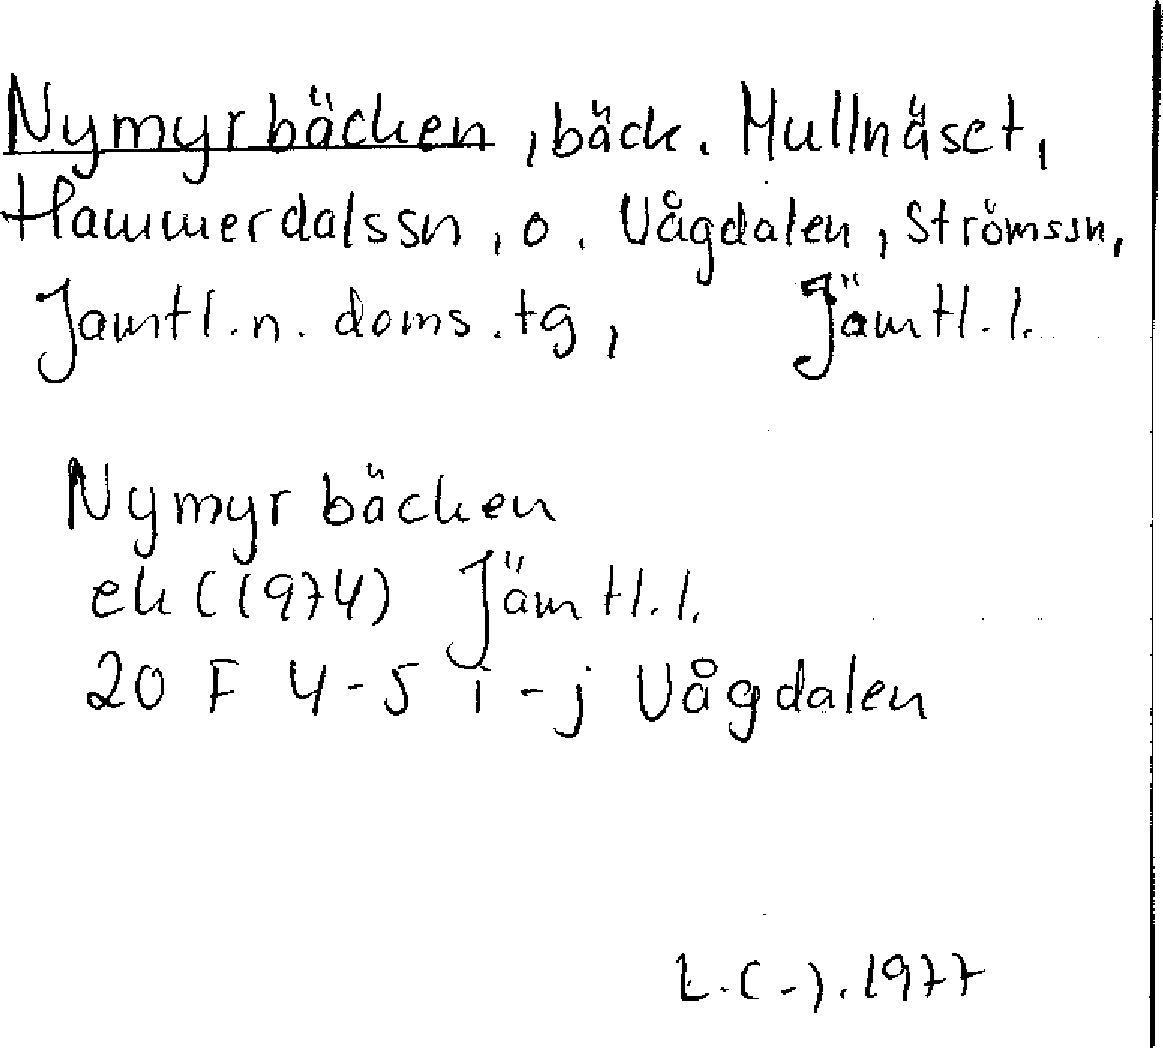 Nymyrbäcken, bäck. Mullnäset,
Hammerdalssn, o. Vågdalen, Strömssn,
Jämtl. n. doms. tg, Jämtl. l.
Nymyrbäcken
ek (1974) Jämtl. l.
20 F 4-5 i-j Vågdalen
L. (-). 1977